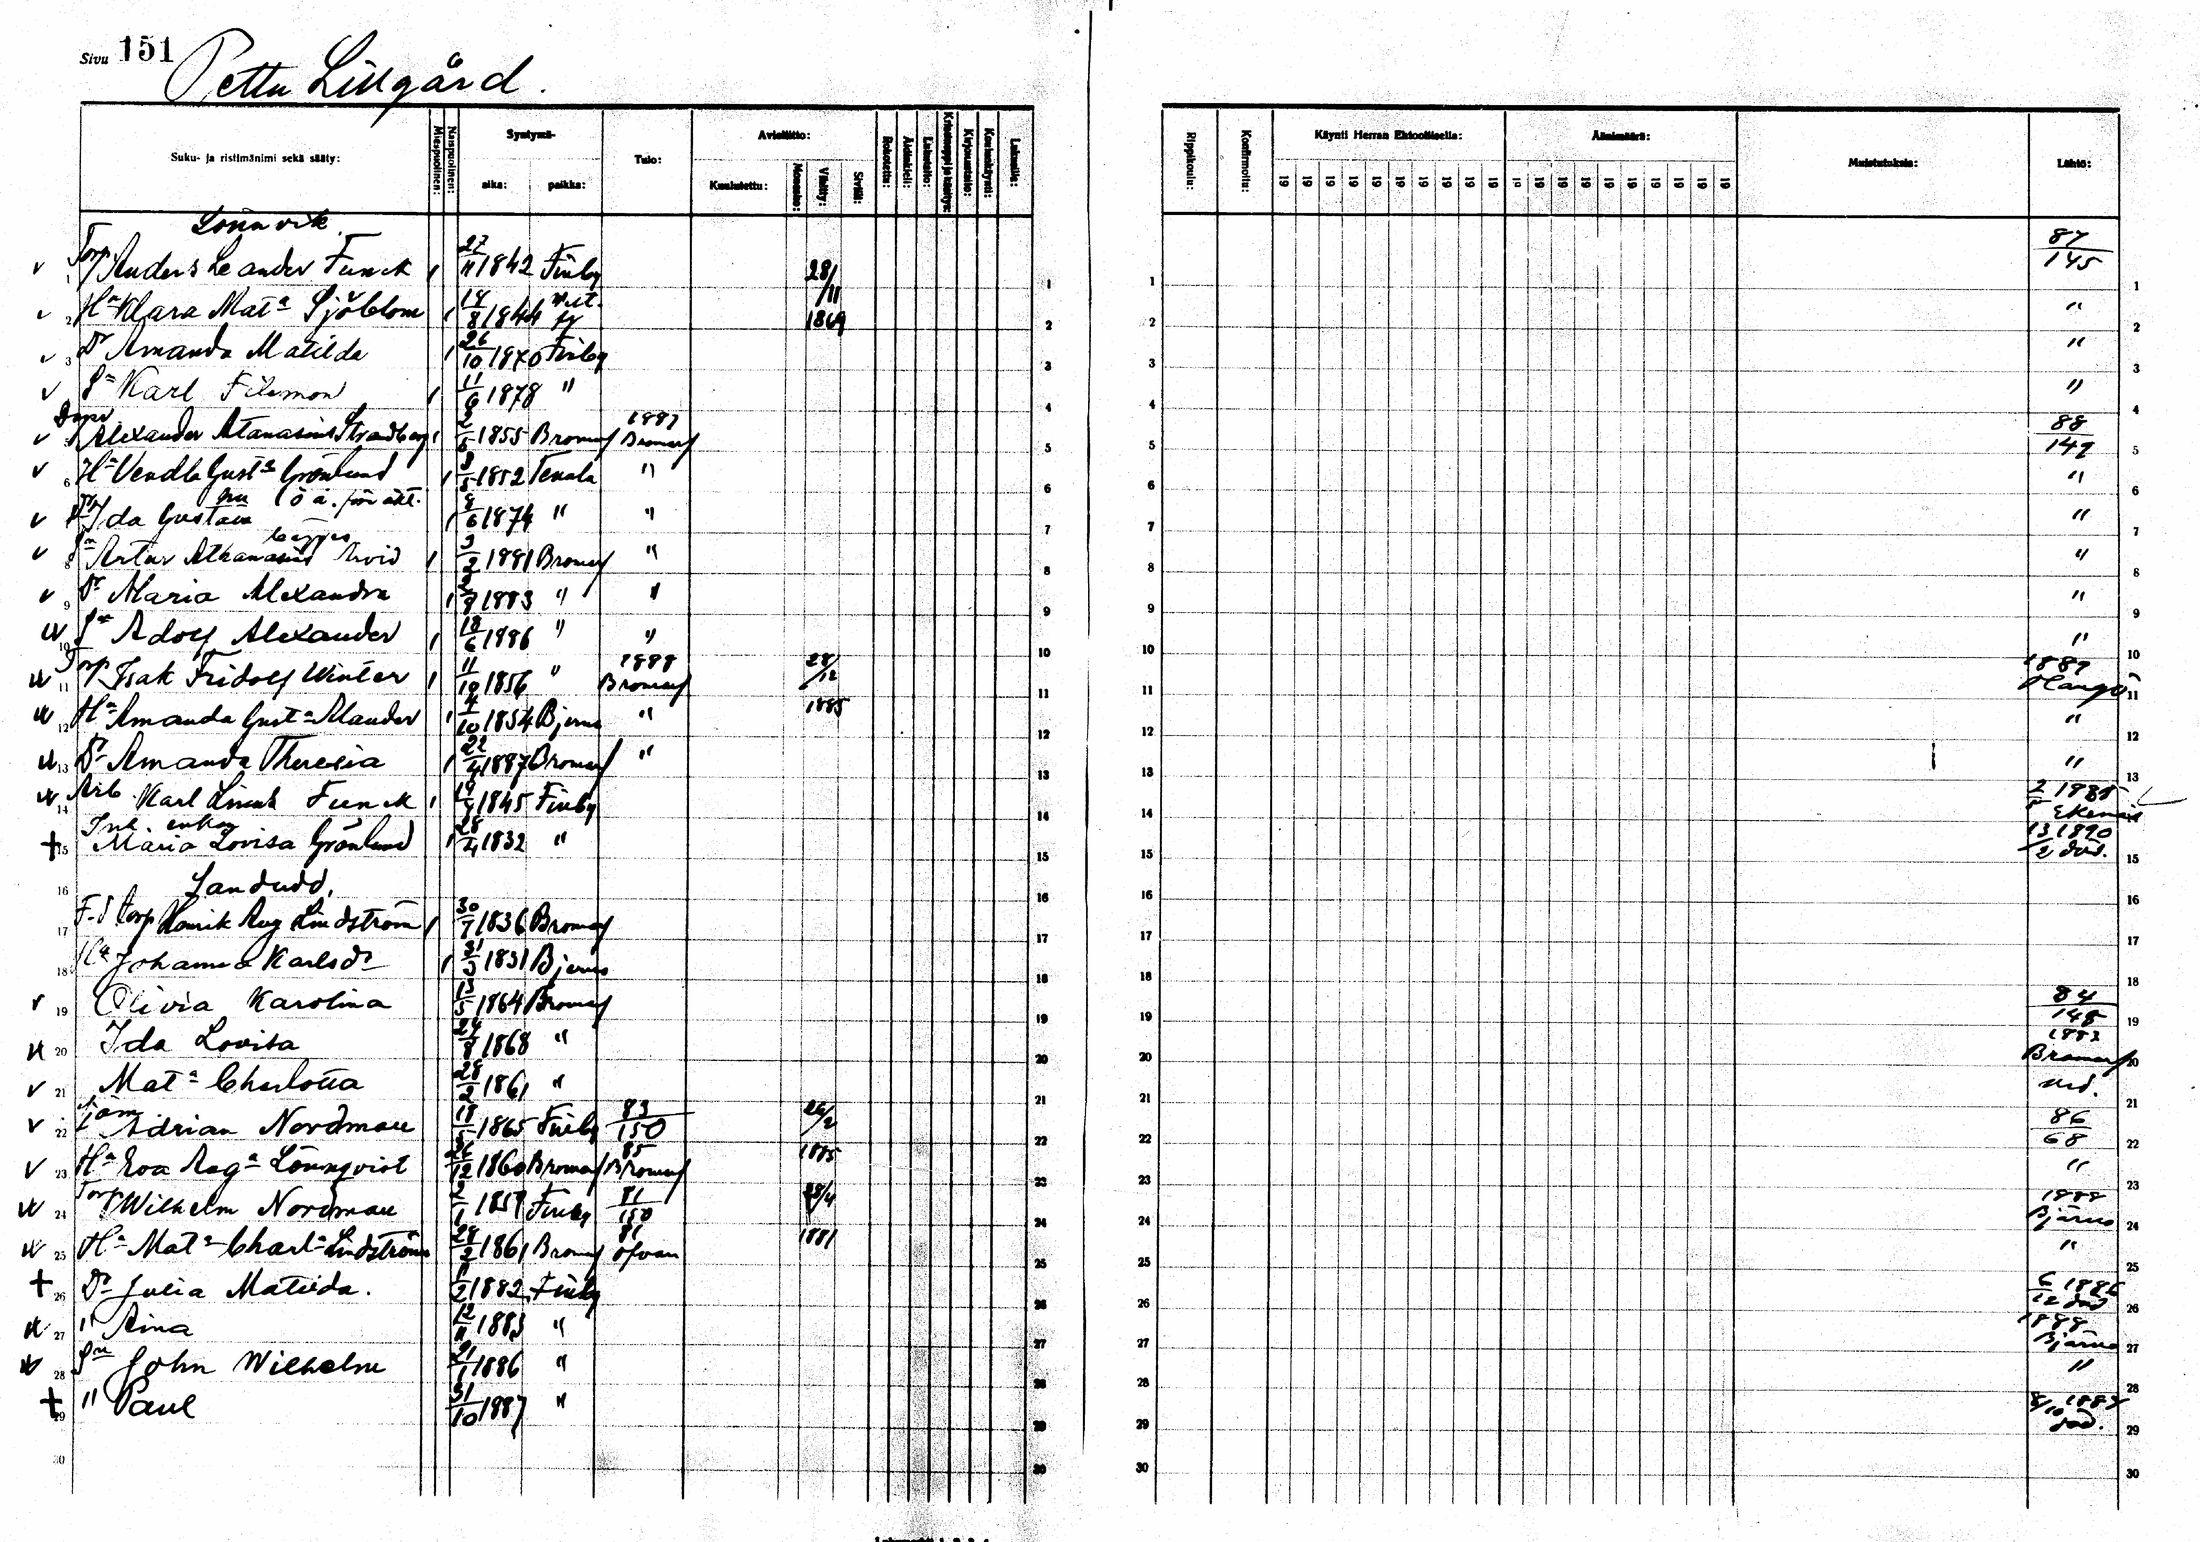 Sivu 151
Pettu Lillgård.
Suku- ja ristimänimi sekä sääty: Miespuolinen: Naispuolinen: Syntymä- aika: paikka: Tulo: Avioliitto: Kuulutettu: Vihitty: Siviili: Rokotettu: Äidinkieli: Lukutaito: Kirjoitustaito: Koulunkäynti: Lukusija: Rippikoulu: Konfirmoitu: Käynti Herran Ehtoollisella: Äänimäärä: Muistutuksia: Lähtö:
19 19 19 19 19 19 19 19 19 19 19 19 19 19 19 19 19 19 19 19
Lönnvik.
v 1 Torp Anders Leander Funck 1 27/11 1842 Finby 28/11 1 87/145
v 2 Hu Klara Mata Sjöblom 1 18/8 1844 1869 2 "
v 3 Dr Amanda Matilda 1 26/10 1870 Finby 3 "
v Sn Karl Filemon 1 11/6 1878 " 4 "
v Alexander Atanasius Strandberg 1 1855 Bromarf 1887 Bromarf 5 88/149
v 6 Ha Vendla Gusta Grönlund 1 1852 Tenala " 6 "
v Ida Gustava ö ä. för äkt. 1 8/6 1874 " " 7 "
v 8 Sn Artur Athanasius Arvid 1 3/2 1881 Bromarf " 8 "
v 9 Dr Maria Alexandra 1 1883 " " 9 "
10 Sn Adolf Alexander 1 18/6 1886 " " 10 "
11 Torp Isak Fridolf Winter 1 11/10 1856 " 1888 Bromarf 28/12 11 1889 Hangö
12 Ha Amanda Gusta Mander 1 4/10 1854 Bjerno " 1885 12 "
13 Dr Amanda Theresia 1 22/4 1887 Bromarf " 13 "
14 Arb. Karl Funck 1 1845 Finby 14 1888 Ekenäs
+ 15 Inh. enkan Maria Lovisa Grönlund 1 28/4 1832 " 15 13/2 1890 död.
16 Sandudd. 16
17 F.d torp Henrik Aug Lindström 1 30/7 1836 Bromarf 17
18 Ha Johanna Karlsdr 1 31/3 1831 Bjerno 18
v 19 Olivia Karolina 13/5 1864 Bromarf 19 84/148
20 Ida Lovisa 24/8 1868 " 20 1883 Bromarf
v 21 Mata Charlotta 28/2 1861 " 21 ned.
v 22 Adrian Nordman 18/5 1865 Finby 83/150 26/2 22 86/68
v 23 Ha Eva Auga Lönnqvist 26/12 1860 Bromarf 85 Bromarf 1885 23 "
24 Torp Wilhelm Nordman 1857 Finby 81/150 28/4 24 1888 Bjärno
25 Ha Mata Charla Lindström 28/2 1861 Bromarf 81 ofvan 1881 25 "
+ 26 Dr Julia Matilda. 1882 Finby 26 6/12 1886 död
27 " Aina 12/11 1883 " 27 1888 Bjärno
28 Sn John Wilhelm 21/1 1886 " 28 "
+ 29 " Paul 31/10 1887 " 29 död.
30 30